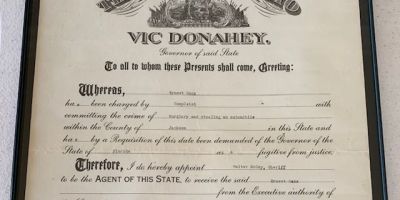 VIC DONAHEY,
Governor of said State
To all to whom these Presents shall come, Greeting:
Whereas, Ernest Cass
has been charged by Complaint with
committing the crime of Burglary and stealing an automobile
within the County of Jackson in this State and
has by a Requisition of this date been demanded of the Governor of the
State of Florida as a fugitive from justice:
Therefore, I do hereby appoint Walter Sechy, Sheriff
to be the AGENT OF THIS STATE, to receive the said Ernest Cass
from the Executive authority of